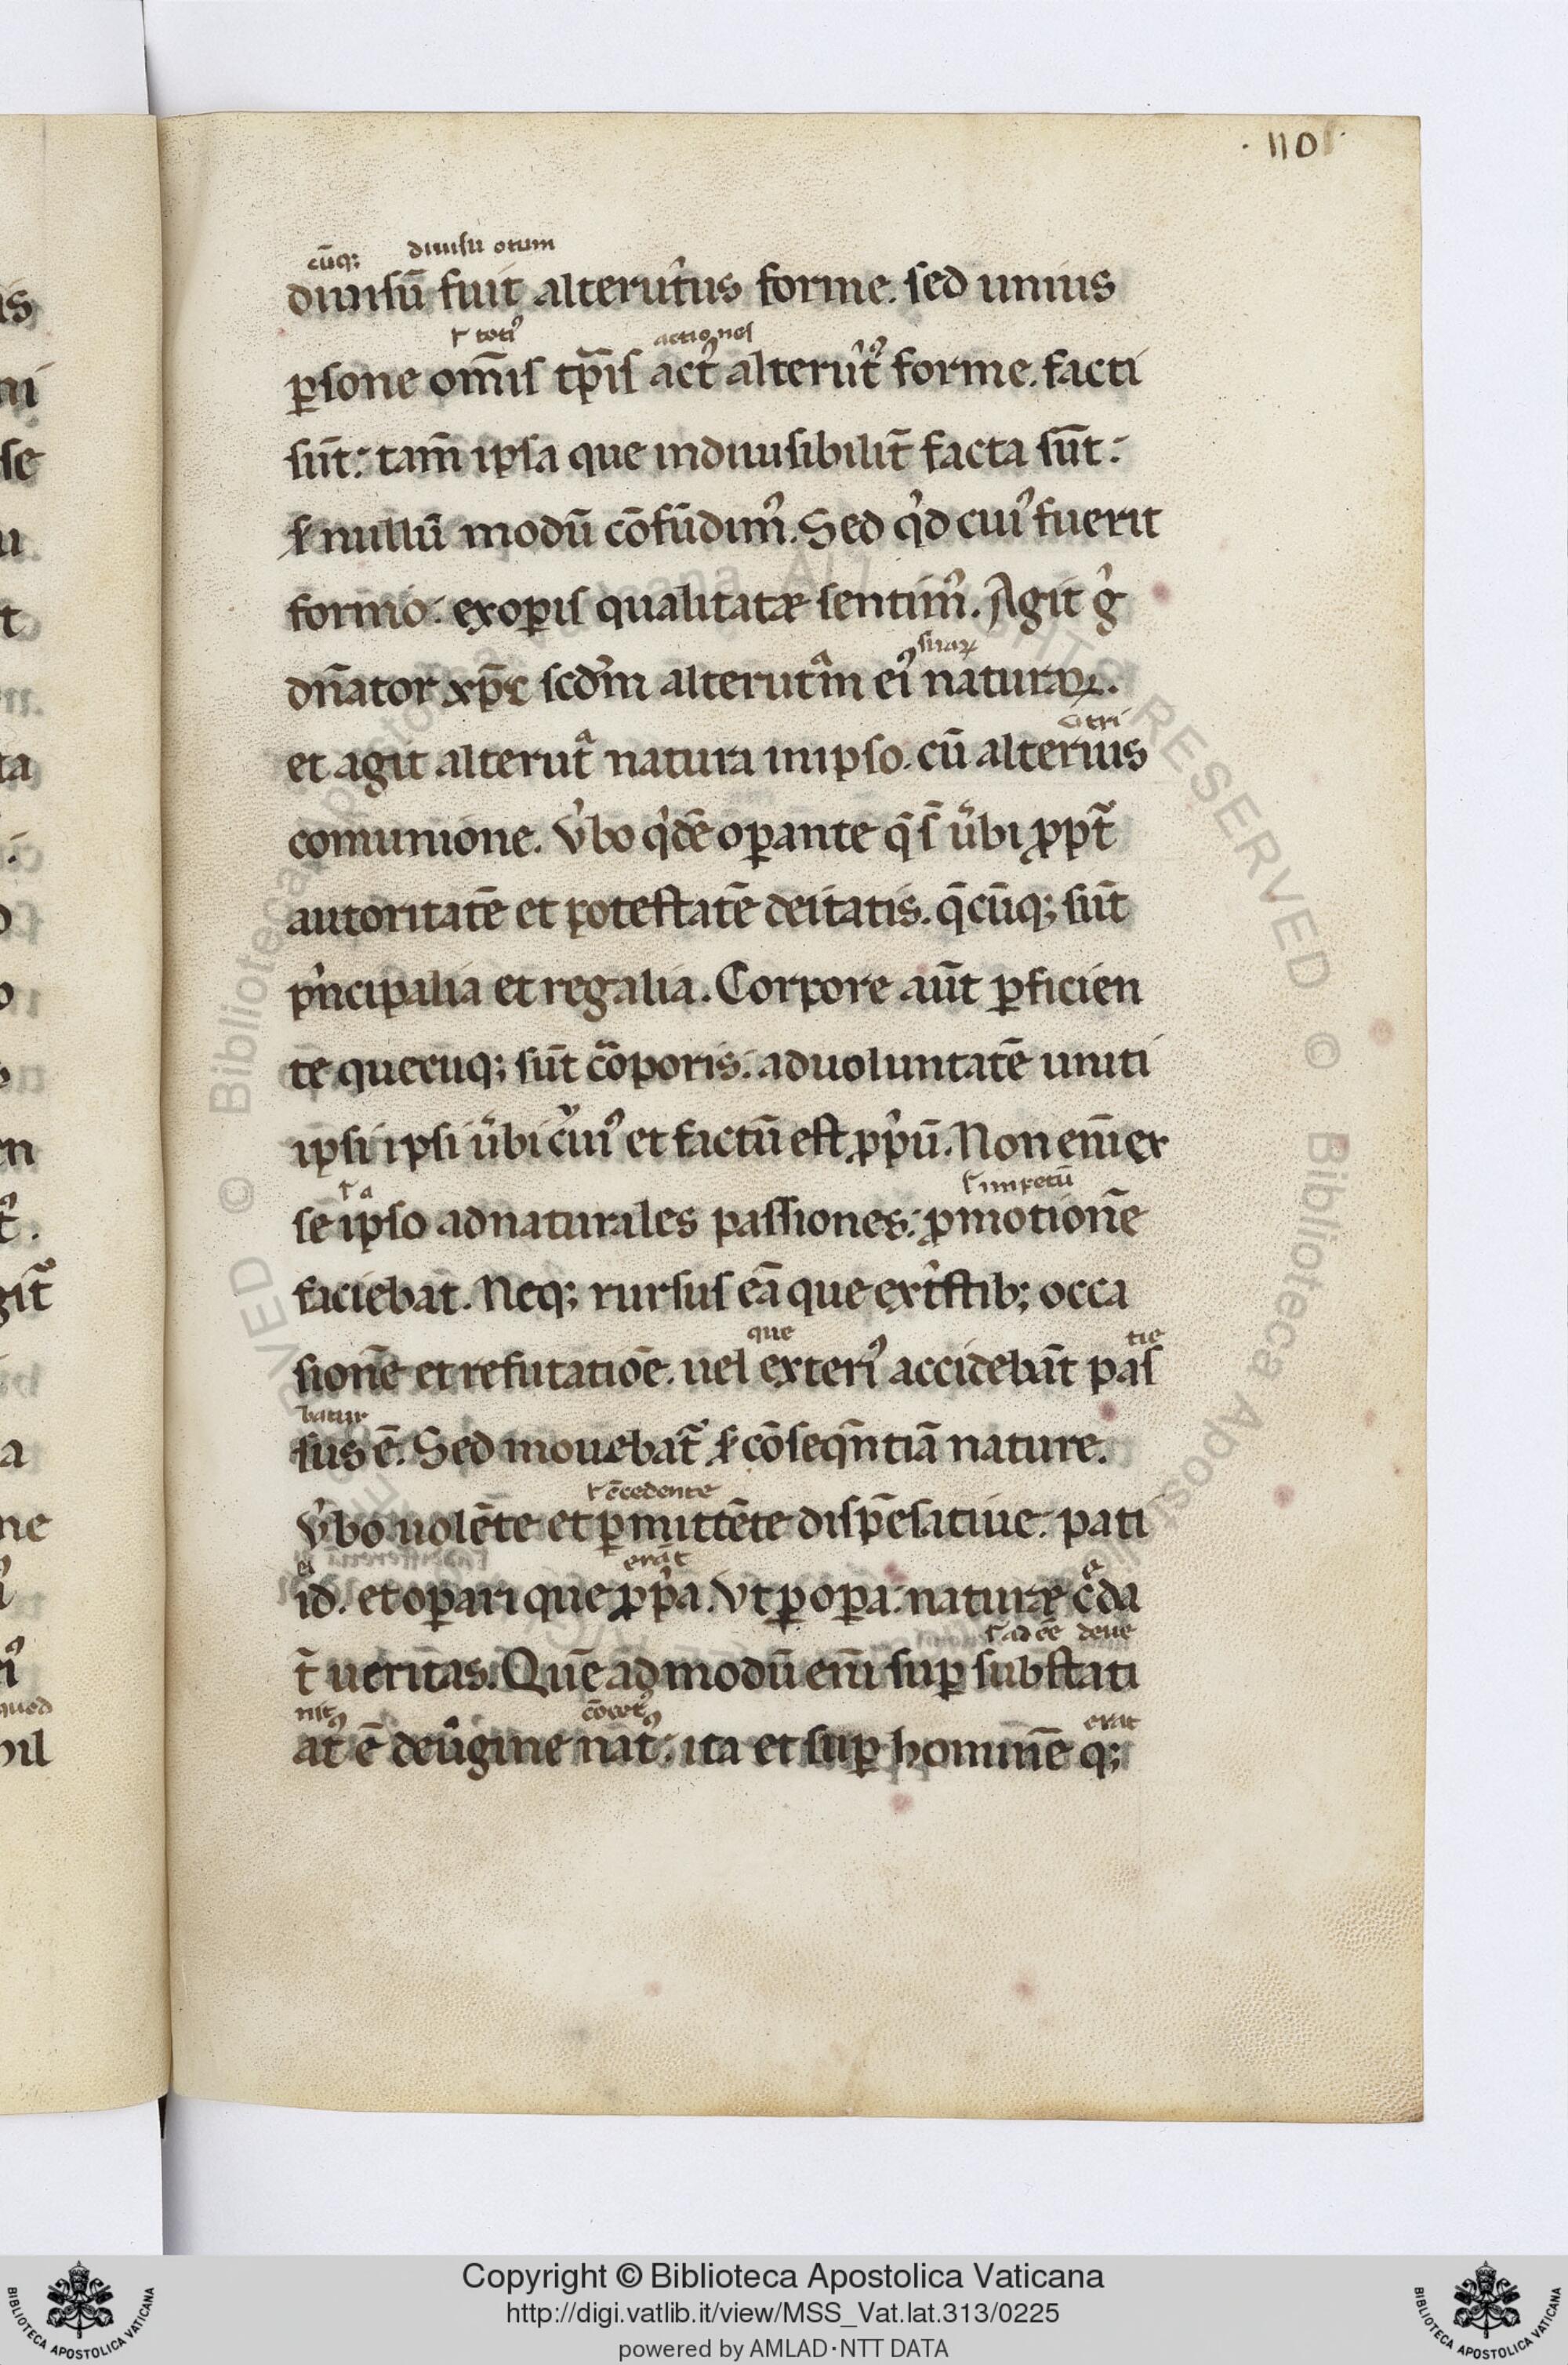 ·110·
cūq; diuisū otum
diuisū fuit alterutͥus forme. sed unius
ł totiꝰ actiones
ꝑsone omīs tꝑis actꝰ alterutͥꝰ forme. facti
sūt: tam̄ ipsa que indiuisibilit̄ facta sūt:
nullū modū cōfūdimꝰ. Sed qͥd cuiꝰ fuerit
formo: exoꝑis qualitatæ sentimꝰ. Agit gͥ
suaꝝ
dn̄ator xp̄c scdͫm alterutͣm eiꝰ naturaꝝ.
utri
et agit alterutͣ natura inipso. cū alterius
comunione. v̓bo qͥdē oꝑante q̄ s̄ u̓bi ꝓpt̄
autoritatē et potestatē deitatis. q̄cūq; sūt
pͥncipalia et regalia. Corpore aūt ꝑficien
te quecūq; sūt cͦꝛporis: aduoluntatē uniti
ipsi ipsi u̓bi cuiꝰ et factū est ꝓpͥū. Non enīex
ł a ł impetū
se ipso adnaturales passiones: ꝓmotionē
faciebat. Neq; rursus eā que extͥstib; occa
que tie
sionē et refutatiōe. uel exteriꝰ accidebāt pas
batur
sus ē. Sed mouebat᷑ cōseqn̄tiā nature.
ł ꝯcedente
v̓bo uolēte et ꝑmittēte dispēsatiue: pati
ea erāt
id. et oꝑari que ꝓpͥa. Vt ꝑ oꝑa: naturæ cͤda
ł ad eē deue
t᷑ ueritas. Quē ad modū enī suꝑ substati
nit cōcetꝰ erat
atꝰ ē deuͥgine natꝰ: ita et suꝑ hominē q;
Copyright © Biblioteca Apostolica Vaticana
http://digi.vatlib.it/view/MSS_Vat.lat.313/0225
powered by AMLAD·NTT DATA
BIBLIOTECA APOSTOLICA VATICANA
BIBLIOTECA APOSTOLICA VATICANA